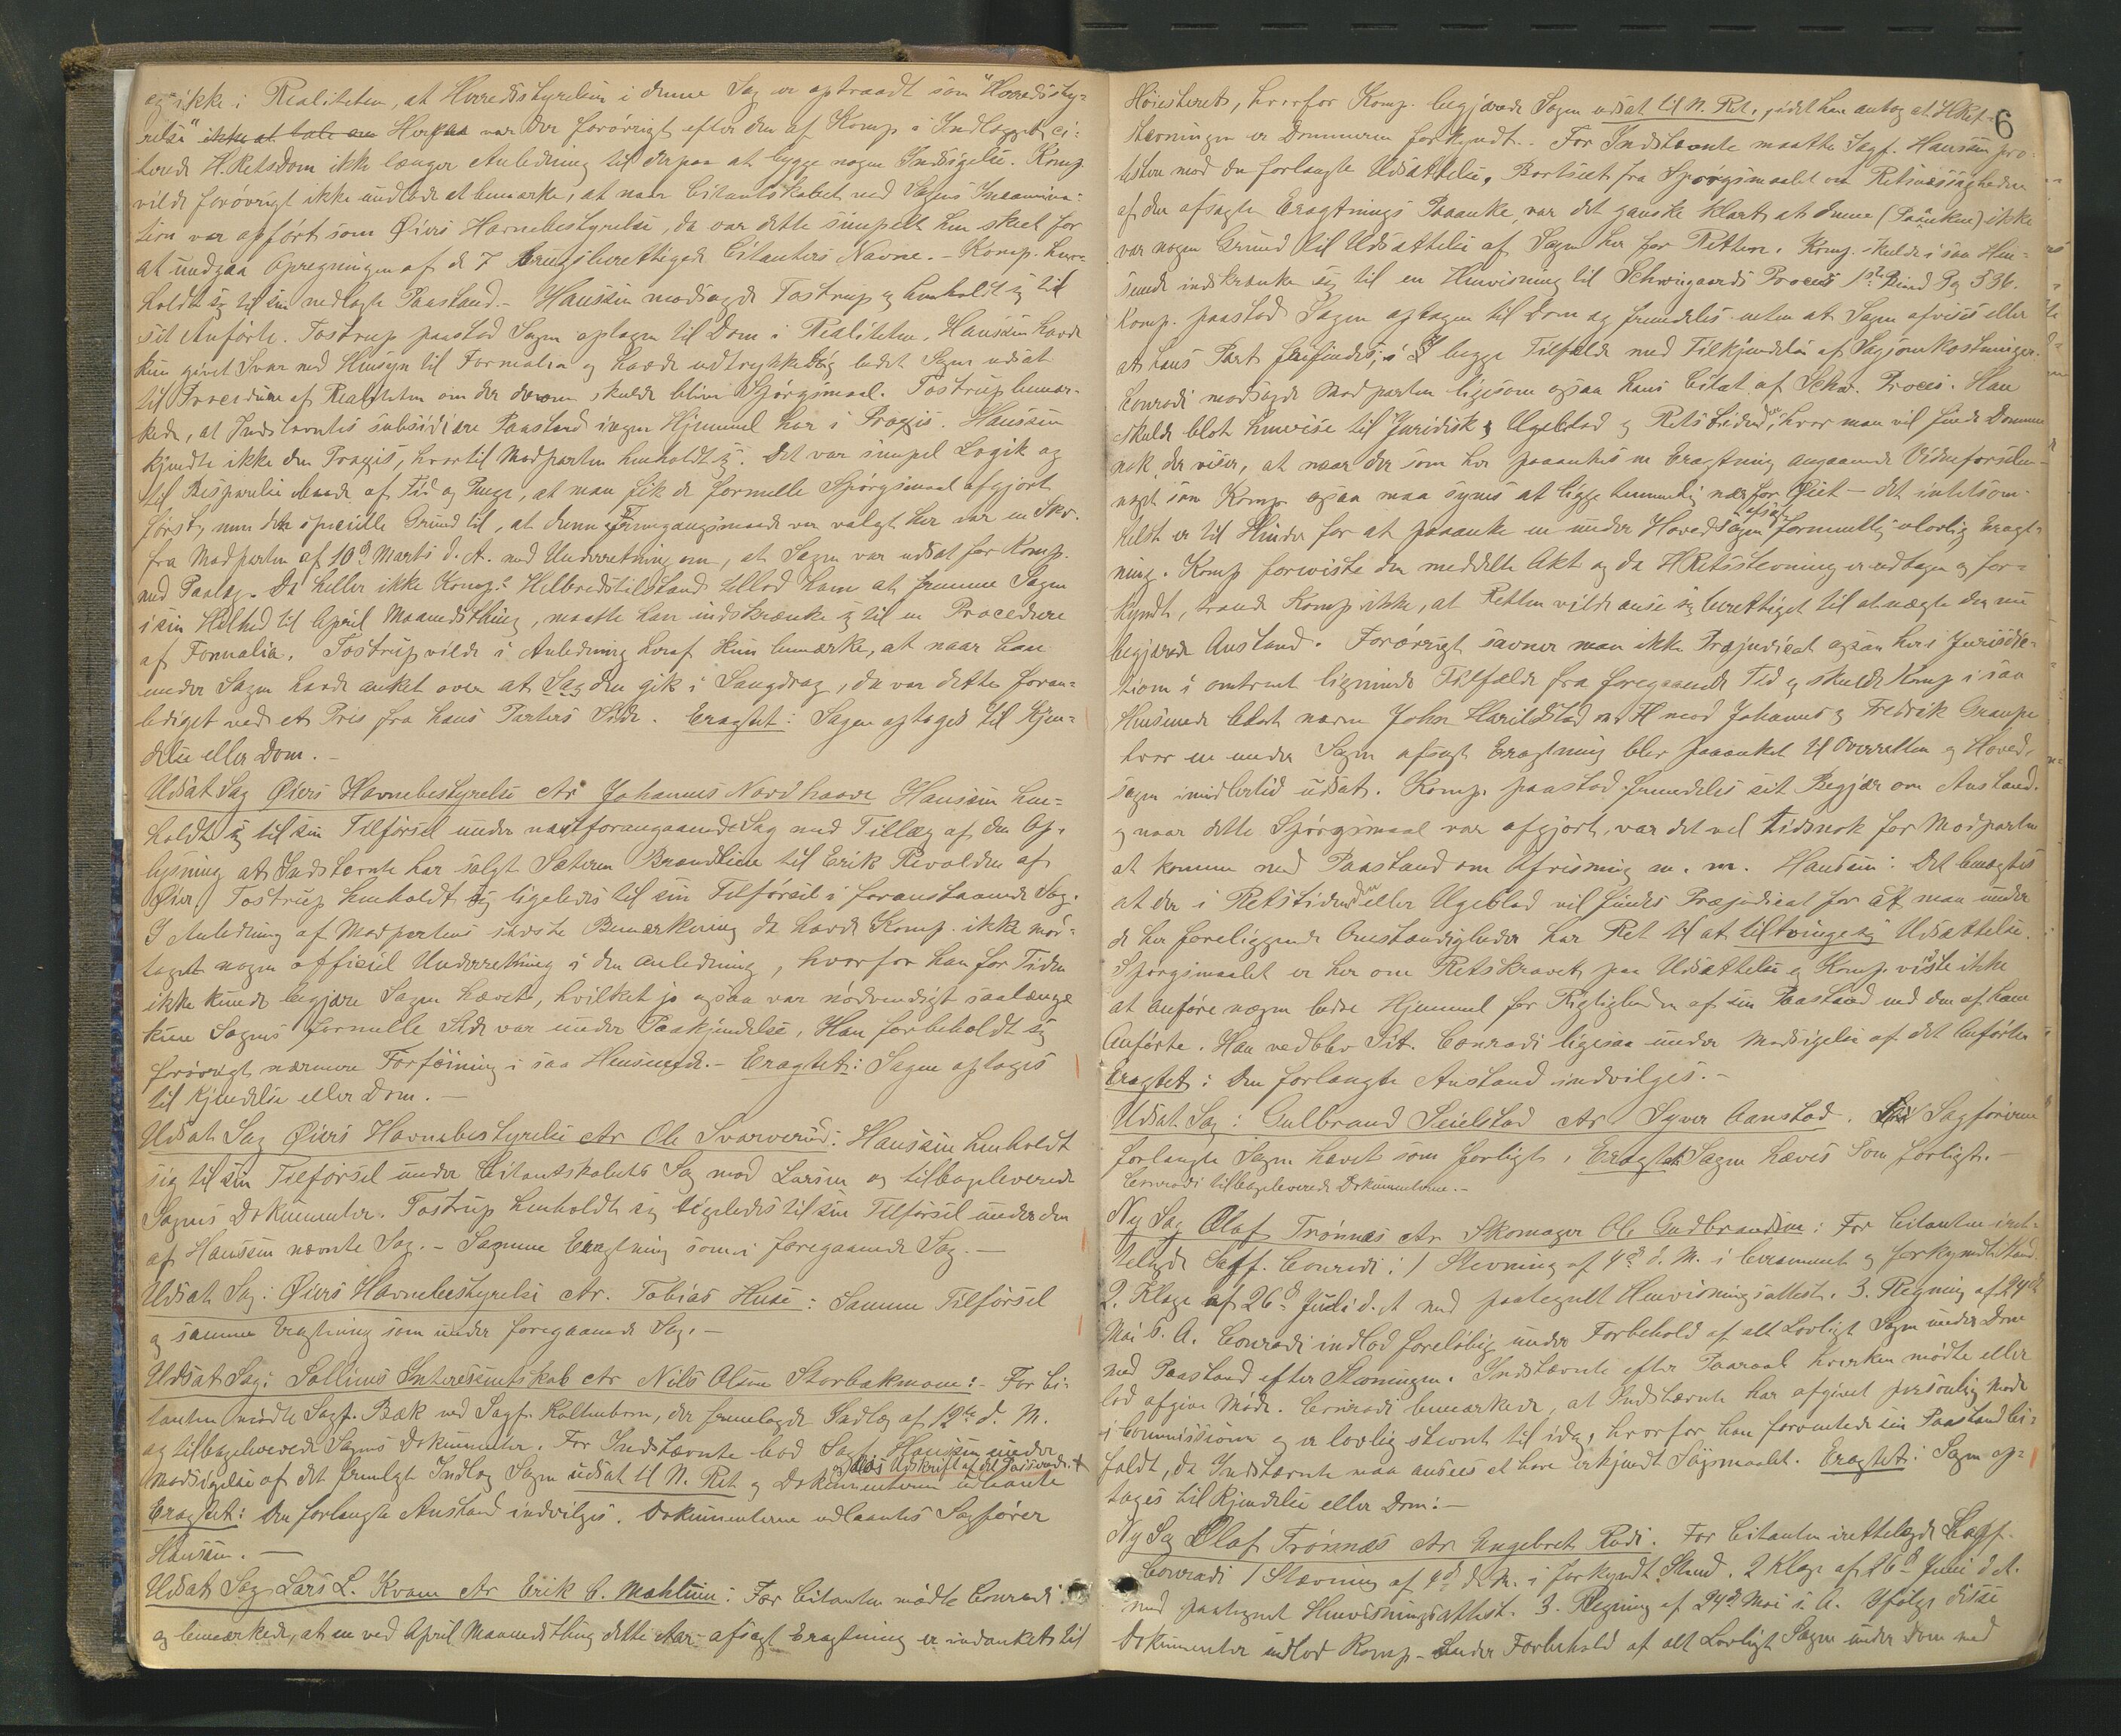 og ikke i Realiteten, at Herredsstyrelsen i denne Sag er optraadt som "Herredssty-
relse" ikke at tale om Herpaa var der forøvrigt efter den af Komp i Indlægget ci-
terede H.Retsdom ikke længer Anledning til derpaa at bygge nogen Indsigelse. Komp.
vilde forøvrigt ikke undlade at bemærke, at naar Citantskabet ved Sagens
tion var opført som Øiers Havnebestyrelse, da var dette simpelt hen skeet for
at undgaa Opregningen af de 7 brugsberettigede Citanters Navne. - Komp. hen-
holdt sig til sin nedlagte Paastand. - Hanssen modsagde Tostrup og henholdt sig til
sit Anførte. Tostrup paastod Sagen optagen til Dom i Realiteten. Hanssen havde
kun givet Svar med Hensyn til Formalia og havde udtrykkelig ladet Sagen udsat
til Procedure af Realiteten om der derom skulde blive Spørgsmaal. Tostrup bemær-
kede, at Indstevntes subsidiære Paastand ingen Hjemmel har i Praxis. Hanssen
kjendte ikke den Praxis, hvortil Modparten henholdt sig. Det var simpel Logik og
til Besparelse baade af Tid og Penge, at man fik de formelle Spørgsmaal afgjort
først, men den specielle Grund til, at denne Fremgangsmaade var valgt her var en Skr.
fra Modparten af 10d Marts d. A. med Underretning om, at Sagen var udsat for Komp.
med Paalæg. Da heller ikke Komp.s Helbredstilstand tillod ham at fremme Sagen
i sin Helhed til April Maanedsthing, maatte han indskrænke sig til en Procedure
af Formalia. Tostrup vilde i Anledning heraf kun bemærke, at naar han
under Sagen havde anket over at Sagen gik i Langdrag, da var dette foran-
lediget ved et Pres fra hans Parters Side. Eragtet: Sagen optages til Kjen-
delse eller Dom. -
Udsat Sag Øiers Havnebestyrelse ctr Johannes Nordhaave Hanssen hen-
holdt sig til sin Tilførsel under næstforangaaende Sag med Tillæg af den Op-
lysning at Indstevnte har solgt Sæteren Brændlien til Erik Revolden af
Øier. Tostrup henholdt sig ligeledes til sin Tilførsel i foranstaaende Sag.
I Anledning af Modpartens sidste Bemærkning da havde Komp. ikke mod-
taget nogen officiel Underretning i den Anledning, hvorfor han for Tiden
ikke kunde begjære Sagen hævet, hvilket jo ogsaa var nødvendigt saalænge
kun Sagens formelle Side var under Paakjendelse. Han forbeholdt sig
forøvrigt nærmere Forføining i saa Henseende. - Eragtet: Sagen optages
til Kjendelse eller Dom. -
Udsat Sag Øiers Havnebestyrelse ctr Ole Svarverud: Hanssen henholdt
sig til sin Tilførsel under Citantskabets Sag mod Larsen og tilbageleverede
Sagens Dokumenter. Tostrup henholdt sig ligeledes til sin Tilførsel under den
af Hanssen nævnte Sag. - Samme Eragtning som i foregaaende Sag. -
Udsat Sag: Øiers Havnebestyrelse ctr. Tobias Huse: Samme Tilførsel
og samme Eragtning som under foregaaende Sag. -
Udsat Sag: Sollims Interessentskab ctr Nils Olsen Storbakmoen: - For Ci-
tanten mødte Sagf. Bæk ved Sagf. Koltenborn, der fremlagde Indlæg af 12te d. M.
og tilbageleverede Sagens Dokumenter. For Indstævnte bad Sagf. Hanssen under
Modsigelse af det fremlagte Indlæg Sagen udsat til N. Ret og Dokumenterne udlaante
Eragtet: Den forlangte Anstand indvilges. Dokumenterne udlaantes Sagfører
Hanssen. -
Udsat Sag Lars L. Kvam ctr Erik C. Mahlum: For Citanten mødte Conradi
og bemærkede, at en ved April Maanedsthing dette Aar afsagt Eragtning er indanket til
6
Høiesteret, hvorfor Komp. begjærede Sagen udsat til N. Ret, idet han antog at H.Rets-
stevningen er Dommeren forkyndt. For Indstevnte maatte Sagf. Hanssen pro-
testere mod den forlangte Udsættelse. Bortseet fra Spørgsmaalet om Retsmæssigheden
af den afsagte Eragtnings Paaanke, var det ganske klart at denne (Paaanken) ikke
var nogen Grund til Udsættelse af Sagen her for Retten. Komp. skulde i saa Hen-
seende indskrænke sig til en Henvisning til Schweigaards Proces 1ste Bind Pg 336.
Komp. paastod Sagen optagen til Dom og fremdeles enten at Sagen afvises eller
at hans Part frifindes, i begge Tilfælde med Tilkjendelse af Sagsomkostninger.
Conradi modsagde Modparten ligesom ogsaa hans Citat af Schw. Proces. Han
skulde blot henvise til Juridisk Ugeblad og Retstidende, hvor man vil finde Domme
nok, der viser, at naar der som her paaankes en Eragtning angaaende Vidneførselen -
noget som Komp. ogsaa maa synes at ligge temmelig nær for Øiet - det intetsom-
helst er til Hinder for at paaanke en under Hovedsagen afsagt formentlig ulovlig Eragt-
ning. Komp foreviste den meddelte Akt og da HRetsstevning er udtagen og for-
kyndt, troede Komp ikke, at Retten vilde anse sig berettiget til at nægte den nu
begjærede Anstand. Forøvrigt savner man ikke Præjudicat ogsaa her i Jurisdic-
tionen i omtrent lignende Tilfælde fra foregaaende Tid og skulde Komp i saa
Henseende blot nævne John Harildstad mod Johannes og Fredrik Graupe
hvor en under Sagen afsagt Eragtning blev paaanket til Overretten og Hoved-
sagen imidlertid udsat. Komp. paastod fremdeles sit Begjær om Anstand.
og naar dette Spørgsmaal var afgjort, var det vel tidsnok for Modparten
at komme med Paastand om Afvisning m. m. Hanssen: Det benægtes
at der i Retstidenden eller Ugeblad vil findes Præjudicat for at man under
de her foreliggende Omstændigheder har Ret til at tiltvinge sig Udsættelse.
Spørgsmaalet er her om Retskravet paa Udsættelse og Komp. vidste ikke
at anføre nogen bedre Hjemmel for Rigtigheden af sin Paastand end den af ham
Anførte. Han vedblev Sit. Conradi ligesaa under Modsigelse af det Anførte.
Eragtet: Den forlangte Anstand indvilges. -
Udsat Sag: Gulbrand Seielstad ctr Syver Aanstad. Sagførerne
forlangte Sagen hævet som forligt. Eragtet Sagen hæves som forligt. -
Conradi tilbageleverede Dokumenterne. -
Ny Sag Olaf Trønnæs ctr Skomager Ole Gudbrandsen: For Citanten iret-
telagde Sagf. Conradi: 1 Stevning af 4d d. M. i beramment og forkyndt Stand.
2. Klage af 26d Juli d. A med paategnet Henvisningsattest. 3. Regning af 24de
Mai s. A. Conradi indlod foreløbig under Forbehold af alt Lovligt Sagen under Dom
med Paastand efter Stevningen. Indstævnte efter Paaraab hverken mødte eller
lod afgive Møde. Conradi bemærkede, at Indstævnte har afgivet personlig Møde
i Commissionen og er lovlig stevnt til idag, hvorfor han forventede sin Paastand bi-
faldt, da Indstævnte maa ansees at have erkjendt Søgsmaalet. Eragtet: Sagen op-
tages til Kjendelse eller Dom: -
Ny Sag Olaf Trønnæs ctr Engebret Rudi. For Citanten irettelagde Sagf.
Conradi 1 Stævning af 4d d. M. i forkyndt Stand. 2 Klage af 26d Juni d. A.
med paategnet Henvisningsattest. 3. Regning af 24d Mai s. A. Ifølge disse
Dokumenter indlod Komp. under Forbehold af alt Lovligt Sagen under Dom med